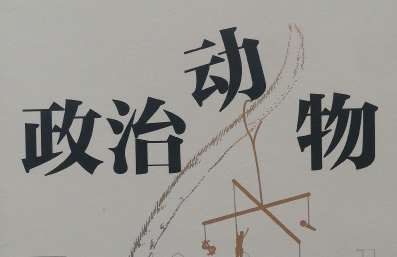 政治动物